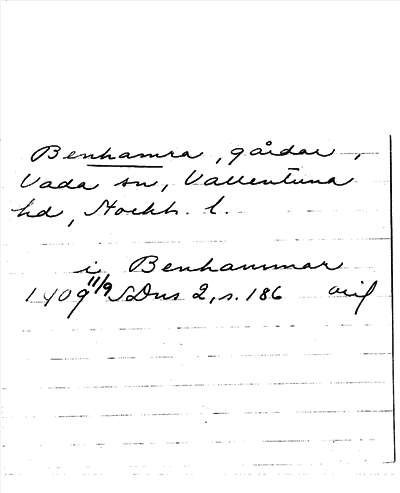 Benhamra, gårdar,
Vada sn, Vallentuna
hd, Stockh. l.
i Benhammar
1409 11/9 SDns 2, s. 186 avil